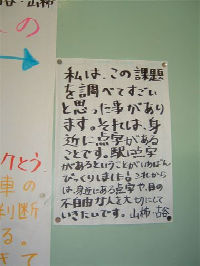 谷・山柿
の
私は、この課題
を調べてすごい
と思った事があり
ます。それは、身
近に点字がある
ことです。駅に点字
があるということがいちばん
びっくりしました。これから
は、身近にある点字や、目の
不自由な人を大切にして
いきたいです。山柿・古谷
クとう
車の。
判断
る。
ぎて